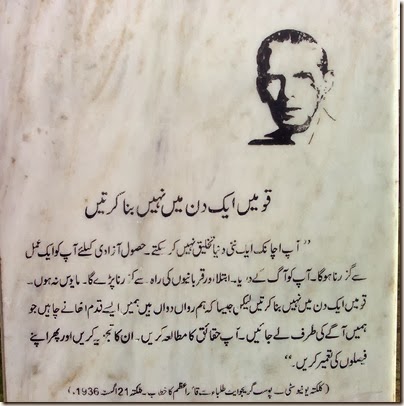 قومیں ایک دن میں نہیں بنا کرتیں
”آپ اچانک ایک نئی دنیا تخلیق نہیں کر سکتے۔ حصول آزادی کیلئے آپ کو ایک عمل
سے گزرنا ہوگا۔ آپ کو آگ کے دریا۔ ابتلا اور قربانیوں کی راہ سے گزرنا پڑے گا۔ مایوس نہ ہوں۔
قومیں ایک دن میں نہیں بنا کرتیں لیکن جیسا کہ ہم رواں دواں ہیں ہمیں ایسے قدم اٹھانے چاہیں جو
ہمیں آگے کی طرف لے جائیں۔ آپ حقائق کا مطالعہ کریں۔ ان کا تجزیہ کریں اور پھر اپنے
فیصلوں کی تعمیر کریں۔“
(کلکتہ یونیورسٹی کے پوسٹ گریجوایٹ طلباء سے قائد اعظم کا خطاب۔ کلکتہ 21 اگست 1936ء)